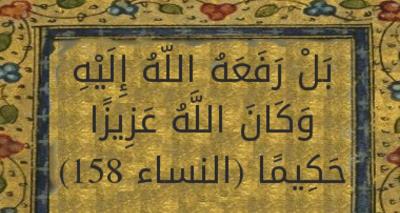 بَلْ رَفَعَهُ اللَّهُ إِلَيْهِ
وَكَانَ اللَّهُ عَزِيزًا
حَكِيمًا (النساء 158)